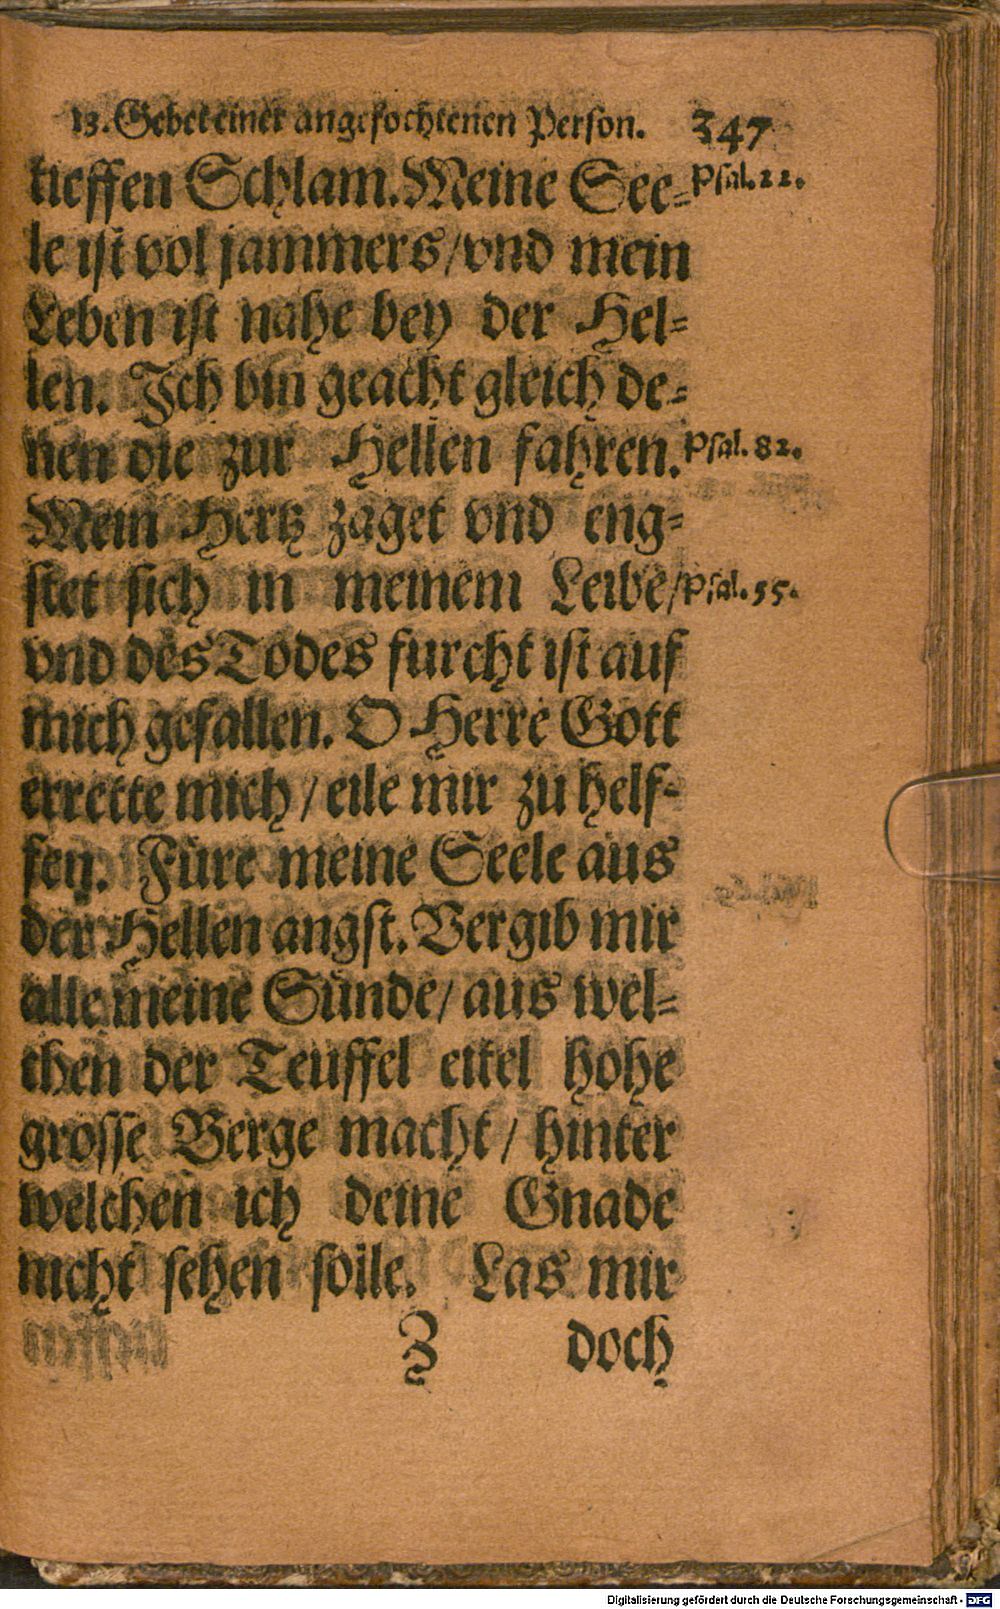 13. Gebet einer angefochtenen Person. 347
tieffen Schlam. Meine See- Psal. 22.
le ist vol jammers / vnd mein
Leben ist nahe bey der Hel-
len. Ich bin geacht gleich de-
nen die zur Hellen fahren. Psal. 82.
Mein Hertz zaget vnd eng-
stet sich in meinem Leibe / Psal. 55.
vnd des Todes furcht ist auf
mich gefallen. O Herre Gott
errette mich / eile mir zu helf-
fen. Füre meine Seele aus
der Hellen angst. Vergib mir
alle meine Sünde / aus wel-
chen der Teuffel eitel hohe
grosse Berge macht / hinter
welchen ich deine Gnade
nicht sehen solle. Las mir
Z doch
Digitalisierung gefördert durch die Deutsche Forschungsgemeinschaft - DFG